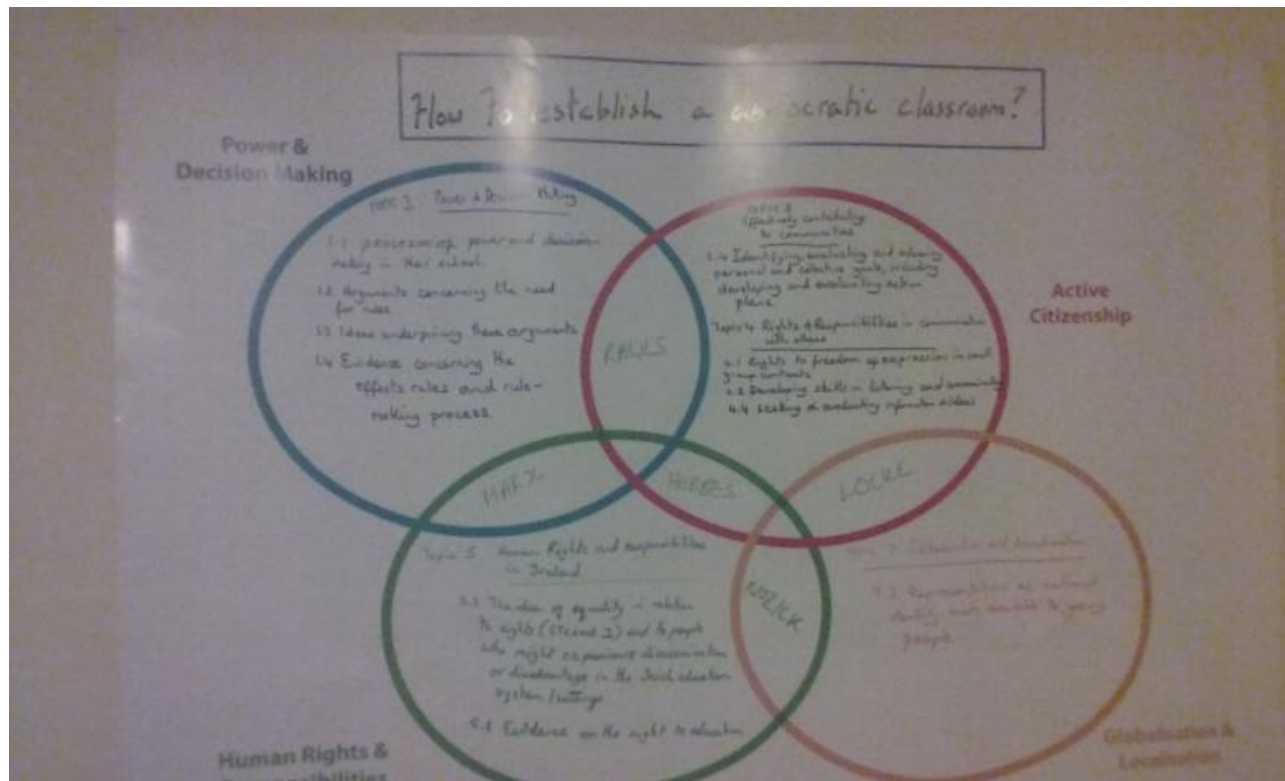 How To establish a democratic classroom?
Power &
Decision Making
Topic 1 Power & Decision Making
1.1 power and decision-
making in their school.
1.2 Arguments concerning the need
for rules
1.3 Ideas underpinning these arguments
1.4 Evidence concerning the
effects rules and rule-
making process
Effectively contributing
to communities
Identifying, evaluating and
personal and collective goals, including
developing and evaluating action
plans
Topic 4 Rights & Responsibilities in communication
with others
4.1 Rights to freedom of expression in
group contexts
Developing skills in listening and
4.4 Seeking & evaluating information
Active
Citizenship
RAWLS
MARX
HOBBES
LOCKE
NOZICK
Topic 5 Human Rights and responsibilities
in Ireland
The idea of equality in relation
to rights (Strand 1) and to people
who might experience discrimination
or disadvantage in the Irish education
system/settings
Evidence on the right to education
Representations of national
identity made available to young
people
Human Rights &
Responsibilities
Globalisation &
Localisation